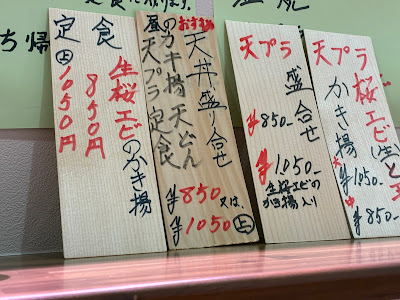 ち帰
生桜エビのかき揚
定食
850円
上1050円
おすすめ
天丼盛り合せ
昼のカキ揚天どん
天プラ定食
¥850又は、
¥1050上
天プラ
盛合せ
¥850-
¥1050-
生桜エビの
かき揚入り
天プラ
桜エビ(生)と
かき揚
¥1050-
中¥850